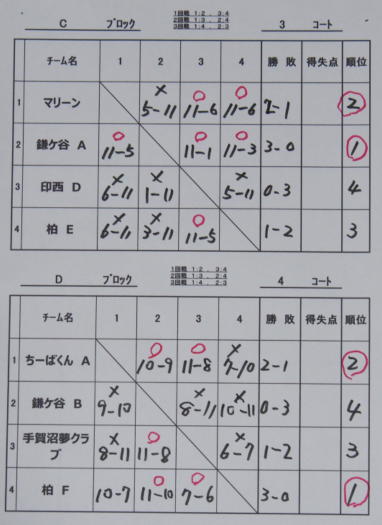 C ブロック 1回戦 1:2 , 3:4 3 コート
2回戦 1:3 , 2:4
3回戦 1:4 , 2:3
チーム名 1 2 3 4 勝 敗 得失点 順位
1 マリーン × 5-11 ○ 11-6 ○ 11-6 2-1 ②
2 鎌ケ谷 A ○ 11-5 ○ 11-1 ○ 11-3 3-0 ①
3 印西 D × 6-11 × 1-11 × 5-11 0-3 4
4 柏 E × 6-11 × 3-11 ○ 11-5 1-2 3
D ブロック 1回戦 1:2 , 3:4 4 コート
2回戦 1:3 , 2:4
3回戦 1:4 , 2:3
チーム名 1 2 3 4 勝 敗 得失点 順位
1 ちーばくん A ○ 10-9 ○ 11-8 × 7-10 2-1 ②
2 鎌ケ谷 B × 9-10 × 8-11 × 10-11 0-3 4
3 手賀沼夢クラブ × 8-11 ○ 11-8 × 6-7 1-2 3
4 柏 F 10-7 ○ 11-10 ○ 7-6 3-0 ①